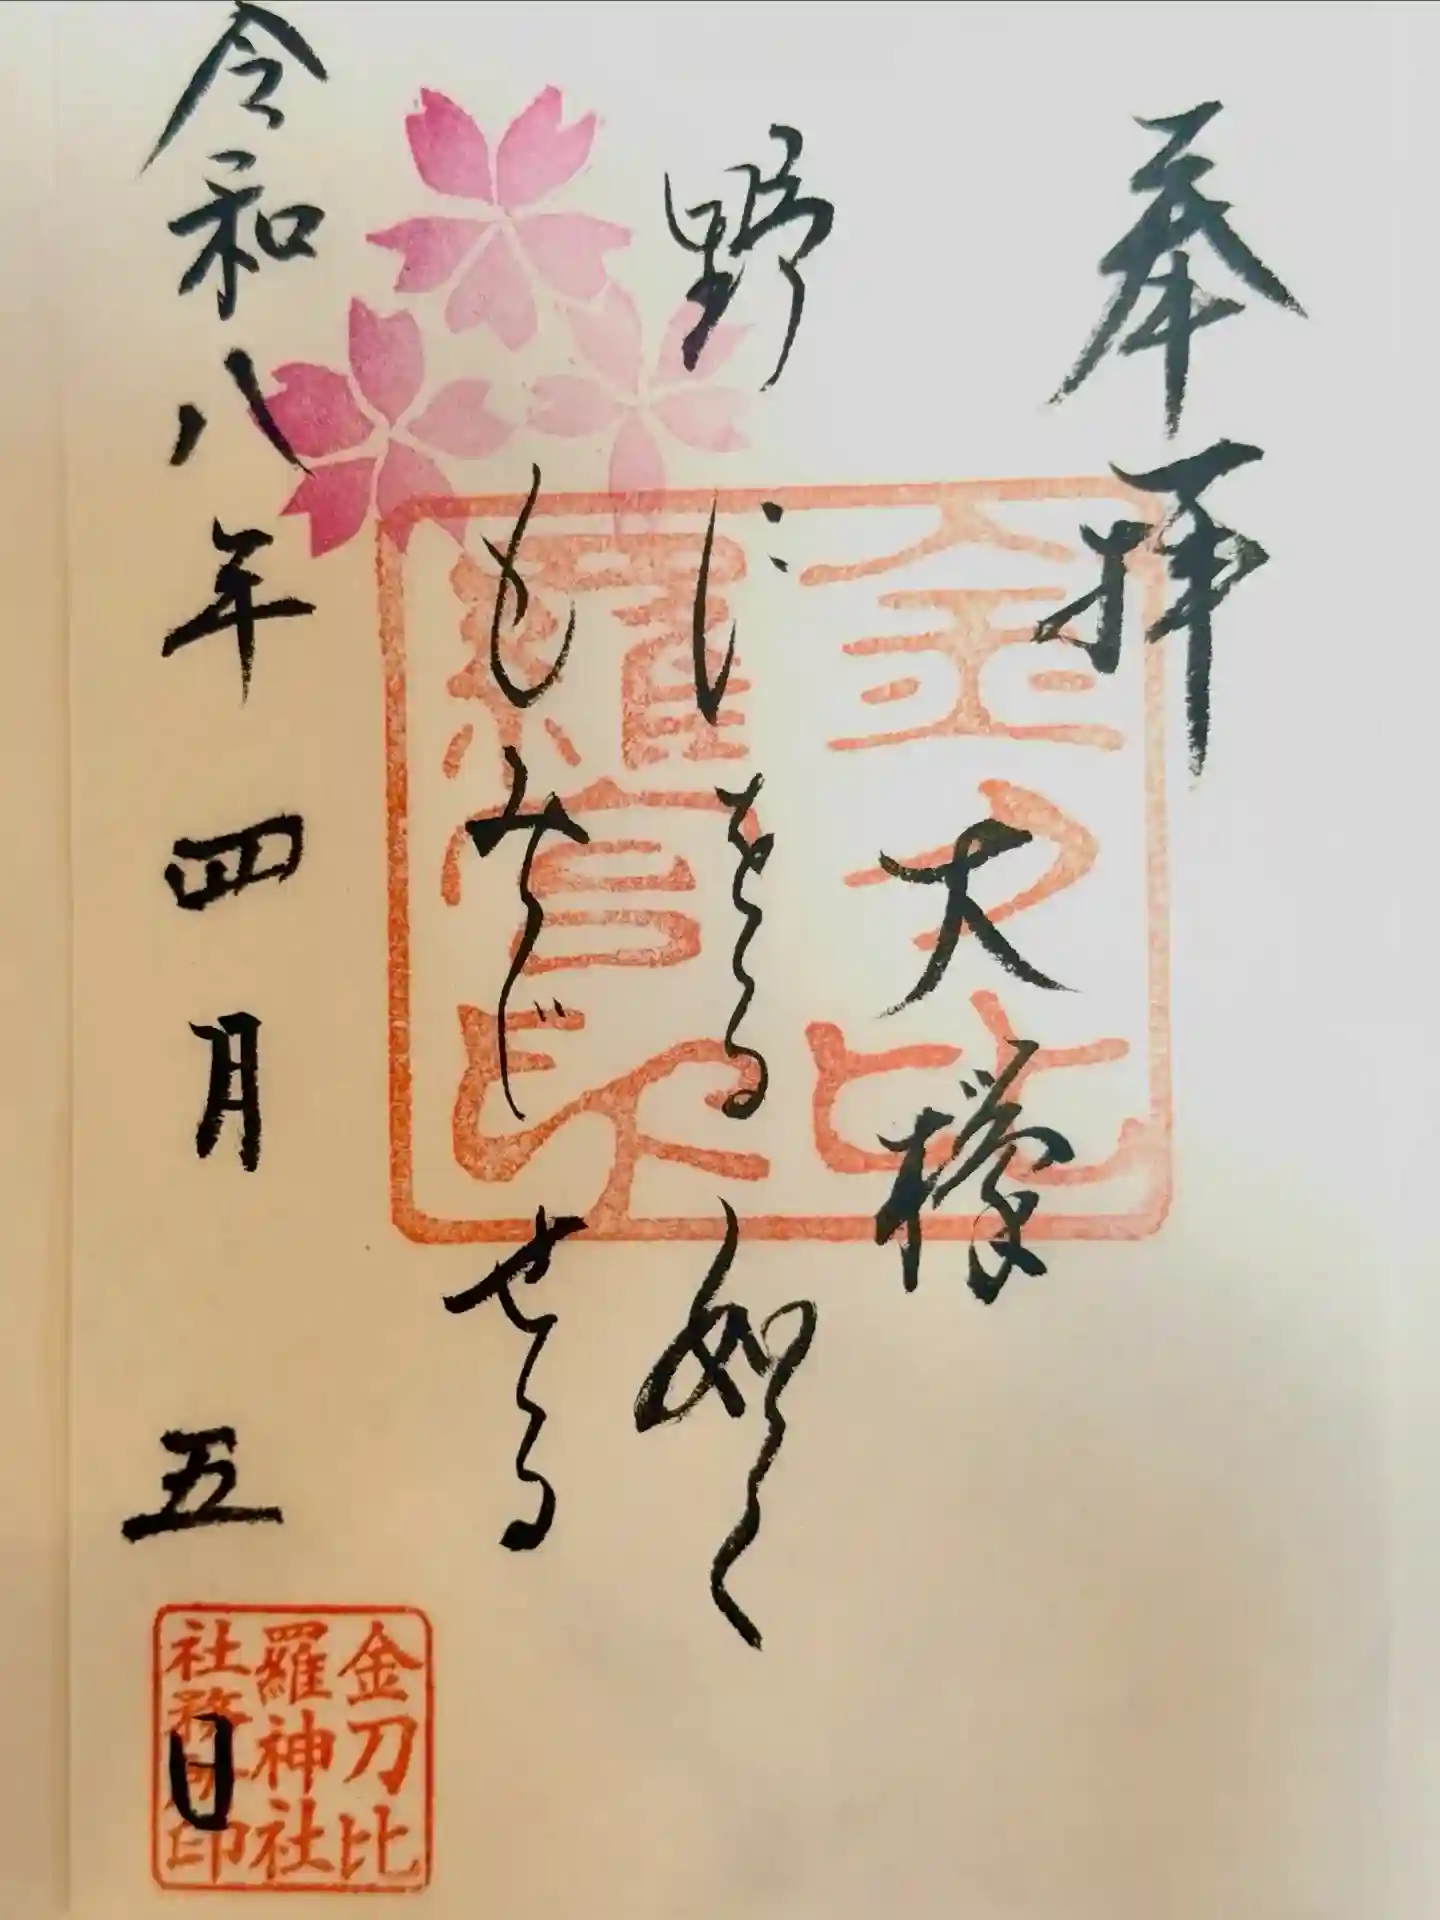 奉拝
大欅
野にをる如く
もみじせる
令和八年四月五日
金刀比
羅宮印
金刀比
羅神社
社務所印